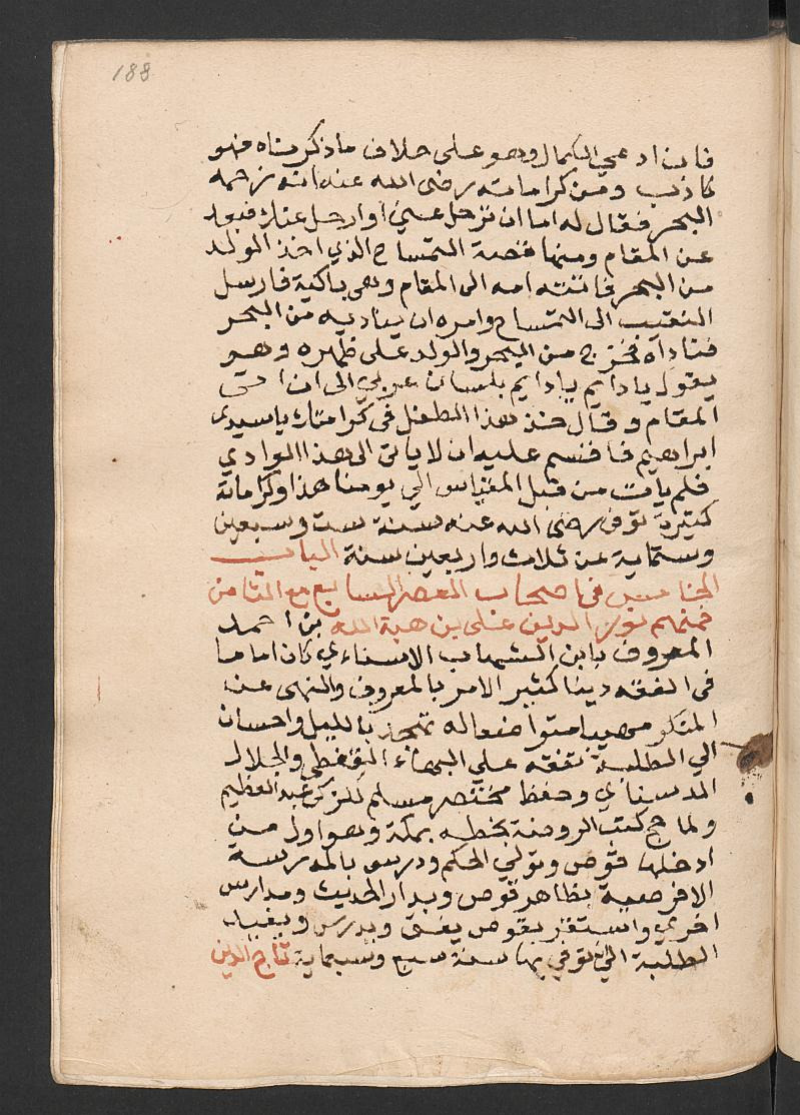 188
فان ادعى الكمال وهو على خلاف ما ذكرناه فهو
كاذب ومن كراماته رضى الله عنه انه زحمه
البحر فقال له اما ان ترحل عني او ارحل عنك فبعد
عن المقام ومنها قصة التمساح الذي اخذ الولد
من البحر فاتته امه الى المقام وهى باكية فارسل
النقيب الى التمساح وامره ان يناديه من البحر
فناداه فخرج من البحر والولد على ظهره وهو
يقول يا دايم يا دايم بلسان عربي الى ان اتى
المقام وقال خذ هذا الطفل فى كرامتك يا سيدى
ابراهيم فاقسم عليه ان لا ياتى الى هذا الوادي
فلم يات من قبل المقياس الي يومنا هذا وكراماته
كثيرة توفى رضى الله عنه سنة ست وسبعين
وستماية عن ثلاث واربعين سنة الباب
الخامس فى اصحاب العصر السابع مع الثامن
فمنهم نور الدين على بن هبة الله بن احمد
المعروف بابن الشهاب الاسناءي كان اماما
فى الفقه دينا كثير الامر بالمعروف والنهى عن
المنكر مهيبا متواضعا له تهجد بالليل واحسان
الي الطلبة تفقه علي البهاء القفطي والجلال
الدسيناءي وحفظ مختصر مسلم للزكي عبد العظيم
ولما حج كتب الروضة بخطه بمكة وهو اول من
ادخلها قوص وتولي الحكم ودرس بالمدرسة
الافرمية بظاهر قوص وبدار الحديث ومدارس
اخري واستقر بقوص يفتى ويدرس ويفيد
الطلبة الي ان توفي بها سنة سبع وسبعماية تاج الدين